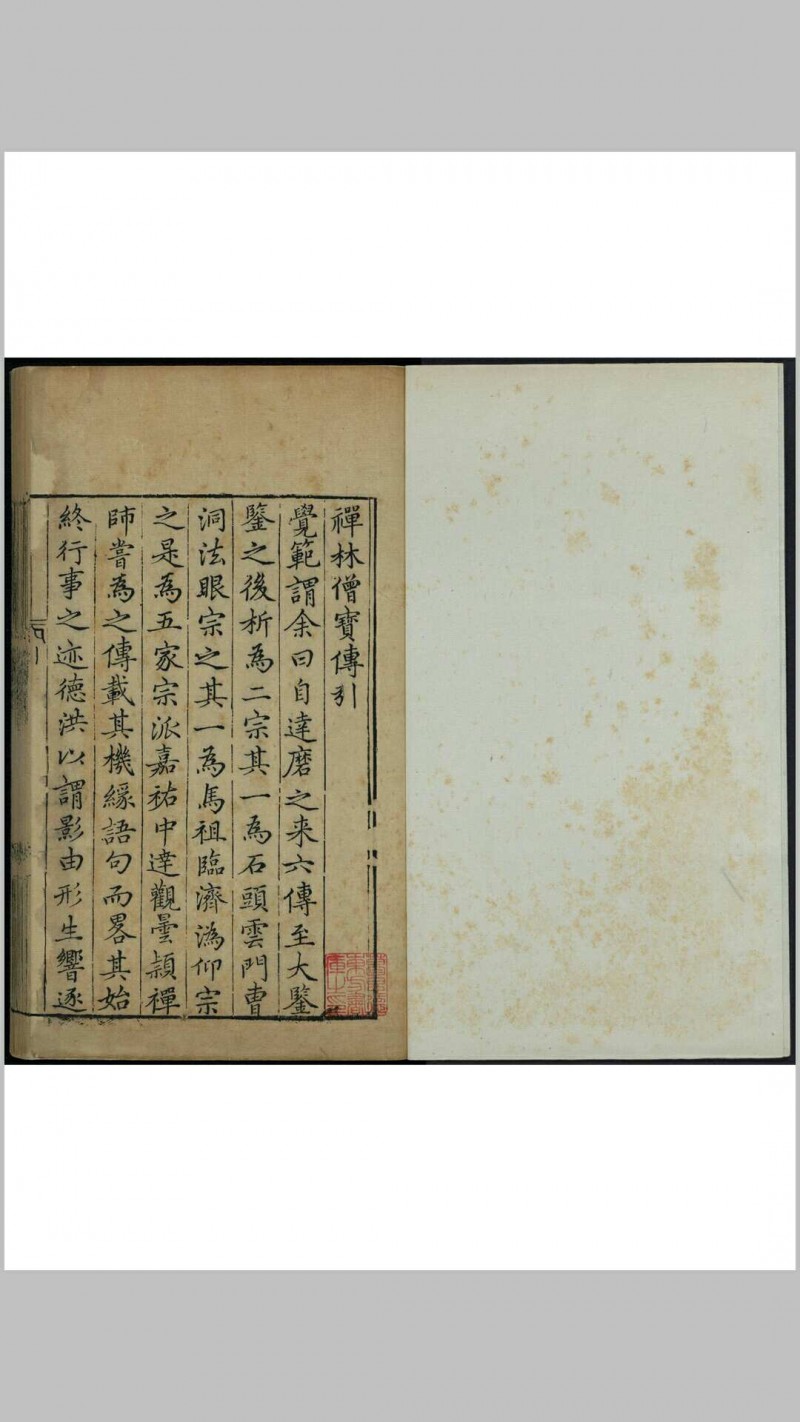 禪林僧寶傳引
覺範謂余曰自達磨之来六傳至大鑒
鑒之後析為二宗其一為石頭雲門曹
洞法眼宗之其一為馬祖臨濟溈仰宗
之是為五家宗派嘉祐中達觀曇頴禪
師嘗為之傳載其機緣語句而畧其始
終行事之迹德洪以謂影由形生響逐